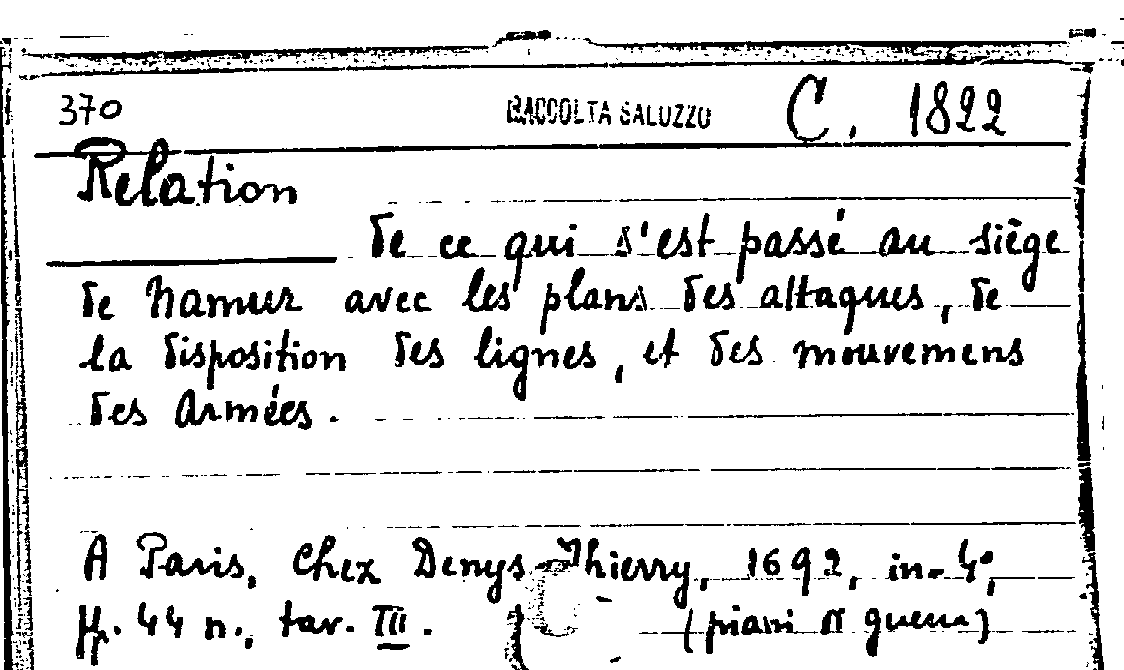 370 RACCOLTA SALUZZO C. 1822
Relation
de ce qui s'est passé au siège
de Namur avec les plans des attaques, de
la disposition des lignes, et des mouvemens
des armées.
A Paris, Chez Denys Thierry, 1692, in-4°,
pp. 44 n., tav. III. (piani di guerra)